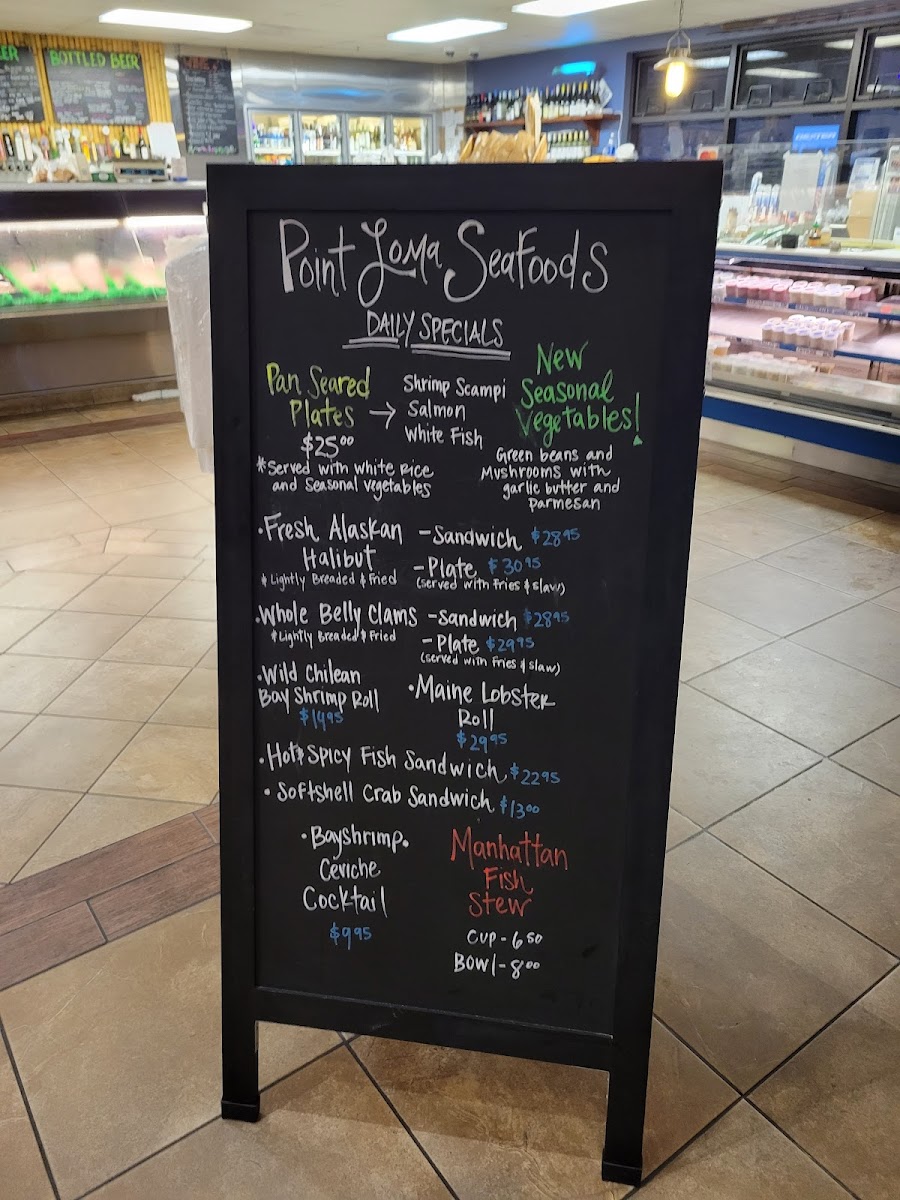 BOTTLED BEER
Point Loma SeaFoods
DAILY SPECIALS
Pan Seared
Plates →
$25.00
*Served with white Rice
and Seasonal vegetables
Shrimp Scampi
Salmon
White Fish
New
Seasonal
Vegetables!
Green beans and
Mushrooms with
garlic butter and
parmesan
•Fresh Alaskan
Halibut
*Lightly Breaded & Fried
-Sandwich $28.95
-Plate $30.95
(served with Fries & slaw)
•Whole Belly Clams
*Lightly Breaded & Fried
-Sandwich $28.95
-Plate $29.95
(served with Fries & slaw)
•Wild Chilean
Bay Shrimp Roll
$14.95
•Maine Lobster
Roll
$29.95
•Hot & Spicy Fish Sandwich $22.95
• Softshell Crab Sandwich $13.00
•Bayshrimp•
Ceviche
Cocktail
$9.95
Manhattan
Fish
Stew
CUP - 6.50
BOWl - 8.00